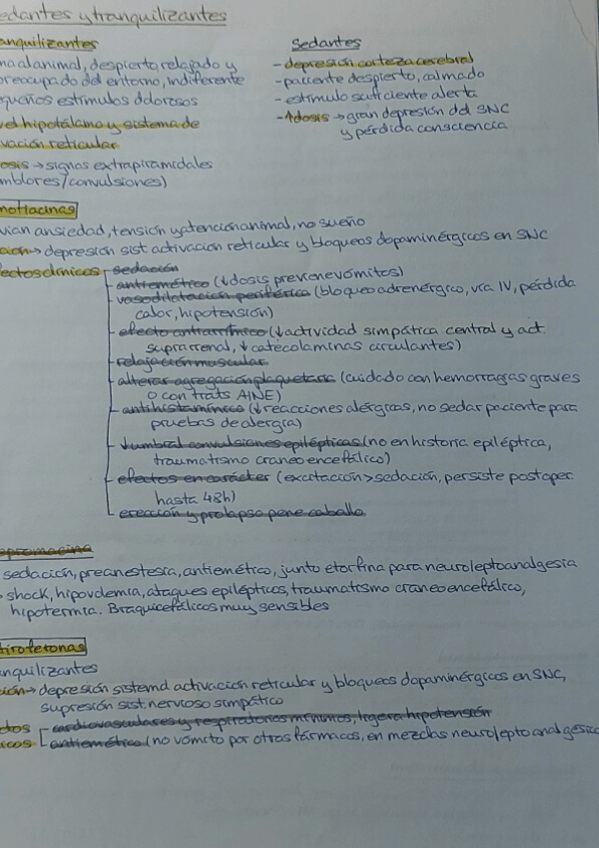 edantes y tranquilizantes
anquilizantes
ma al animal, despierto relajado y
preocupado del entorno, indiferente
queños estímulos dolorosos
vel hipotálamo y sistema de
vación reticular
osis → signos extrapiramidales
mblores/convulsiones)
Sedantes
- depresión corteza cerebral
- paciente despierto, calmado
- estímulo suficiente alerta
- ↑dosis → gran depresión del SNC
y pérdida consciencia
notiacinas
vian ansiedad, tensión y atención animal, no sueño
ción → depresión sist activación reticular y bloqueos dopaminérgicos en SNC
ectos clínicos - sedación
- antiemético (↓dosis previene vómitos)
- vasodilatación periférica (bloqueo adrenérgico, vía IV, pérdida
calor, hipotensión)
- efecto antiarrítmico (↓actividad simpática central y act.
suprarrenal, ↓catecolaminas circulantes)
- relajación muscular
- alterar agregación plaquetaria (cuidado con hemorragias graves
o con trats AINE)
- antihistamínico (↓reacciones alérgicas, no sedar paciente para
pruebas de alergia)
- ↓umbral convulsiones epilépticas (no en historia epiléptica,
traumatismo craneoencefálico)
- efectos en carácter (excitación > sedación, persiste postoper
hasta 48h)
- erección y prolapso pene caballo
epromacina
sedación, preanestesia, antiemético, junto etorfina para neuroleptoanalgesia
shock, hipovolemia, ataques epilépticos, traumatismo craneoencefálico,
hipotermia. Braquicefálicos muy sensibles
tirofenonas
anquilizantes
ción → depresión sistema activación reticular y bloqueos dopaminérgicos en SNC,
supresión sist. nervioso simpático
ctos - cardiovasculares y respiratorios mínimos, ligera hipotensión
icos - antiemético (no vómito por otros fármacos, en mezclas neuroleptoanalgésica